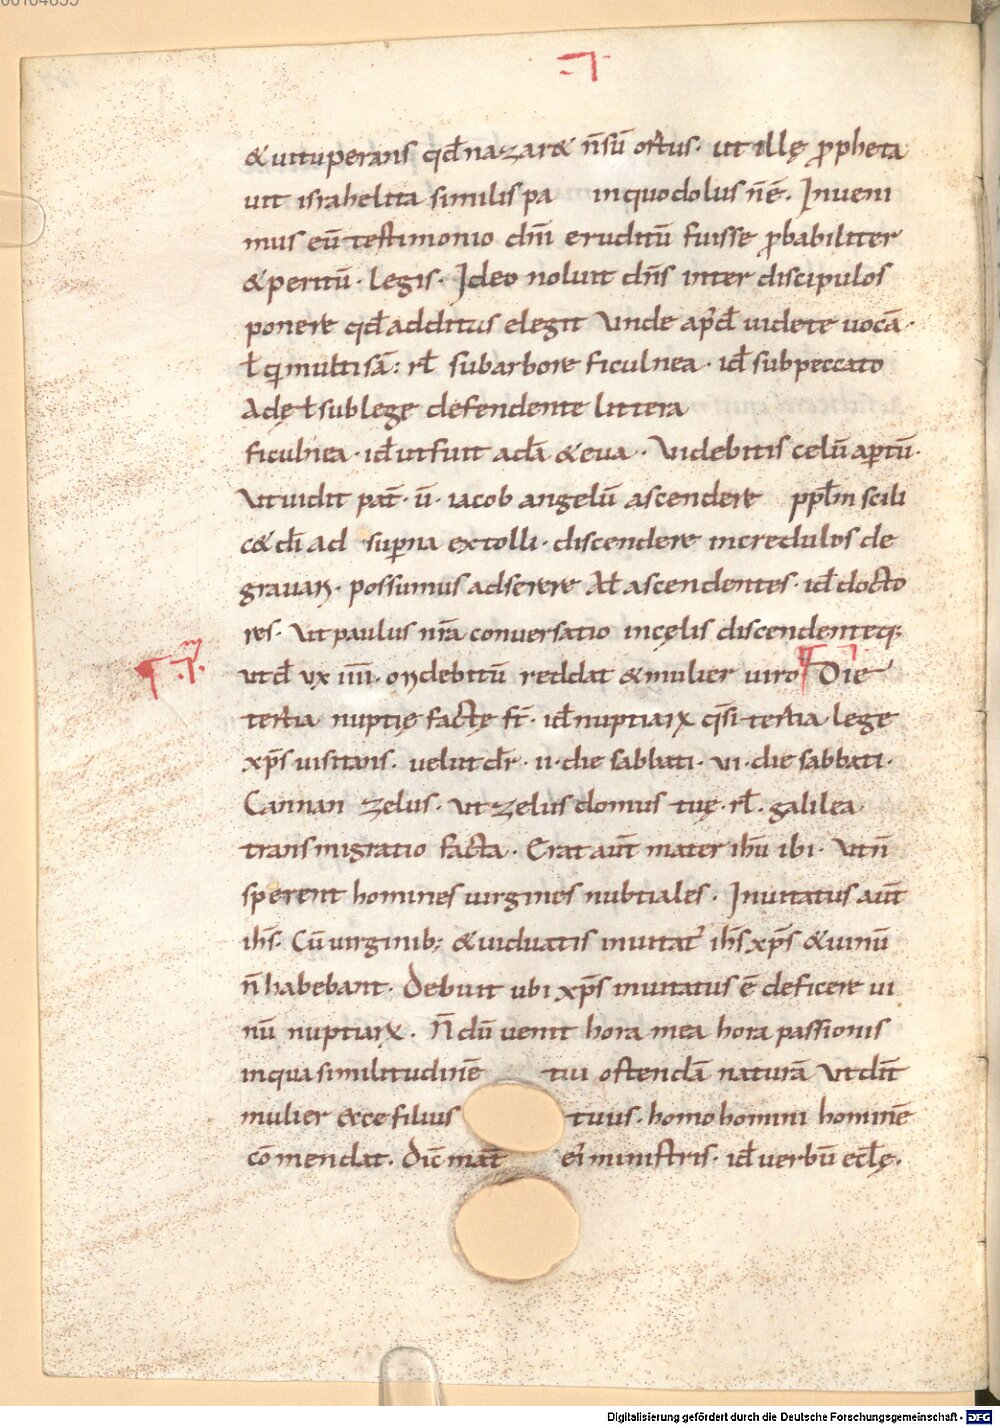 00104633
& uituperans qđ nazar& n̄ sū ortus · ut ille ̨ ꝓpheta
uit israhelita similis pa in quo dolus n̄ ē. Inueni
mus eū testimonio dn̄i eruditū fuisse ꝓbabiliter
& peritū · legis · Ideo noluit dn̄s inter discipulos
ponere qđ additus elegit Unde ap̄đ uidete uocā ·
ł qi multi sā : rł sub arbore ficulnea · iđ sub peccato
Adę ł sub lege defendente littera
ficulnea · iđ ut fuit adā & eua · Videbitis celū aꝑtū ·
Ut uidit pat̄ · ū · iacob angelū ascendere ppłm scili
c& dī ad suꝑna extolli · discendere incredulos de
grauaꝝ · possumus adserere Ał ascendentes · iđ docto
res · Ut paulus nr̄a conuersatio in cęlis discendenteq;
ut đ ux iiii · debitū reddat & mulier uiro Die
tertia nuptię factę st̄ · iđ nuptiaꝝ q̄si tertia lege
xp̄s uisitans · uelut dr̄ · ii · die sabbati · ui · die sabbati ·
Cannan zelus · Ut zelus domus tuę · rł · galilea
transmigratio facta · Erat aūt mater ihū ibi · Ut n̄
sperent homines uirgines nubtiales · Inuitatus aūt
ihs̄ · Cū uirginib; & uiduatis inuitat̄ ihs̄ xp̄s & uinū
n̄ habebant · Debuit ubi xp̄s inuitatus ē deficere ui
nū nuptiaꝝ · N̄ dū uenit hora mea hora passionis
in qua similitudinē tui ostendā naturā Ut dīt
mulier ecce filius tuus · homo homini hominē
cōmendat · Dic̄ mat̄ ei ministris · iđ uerbū ecłę ·
Digitalisierung gefördert durch die Deutsche Forschungsgemeinschaft - DFG